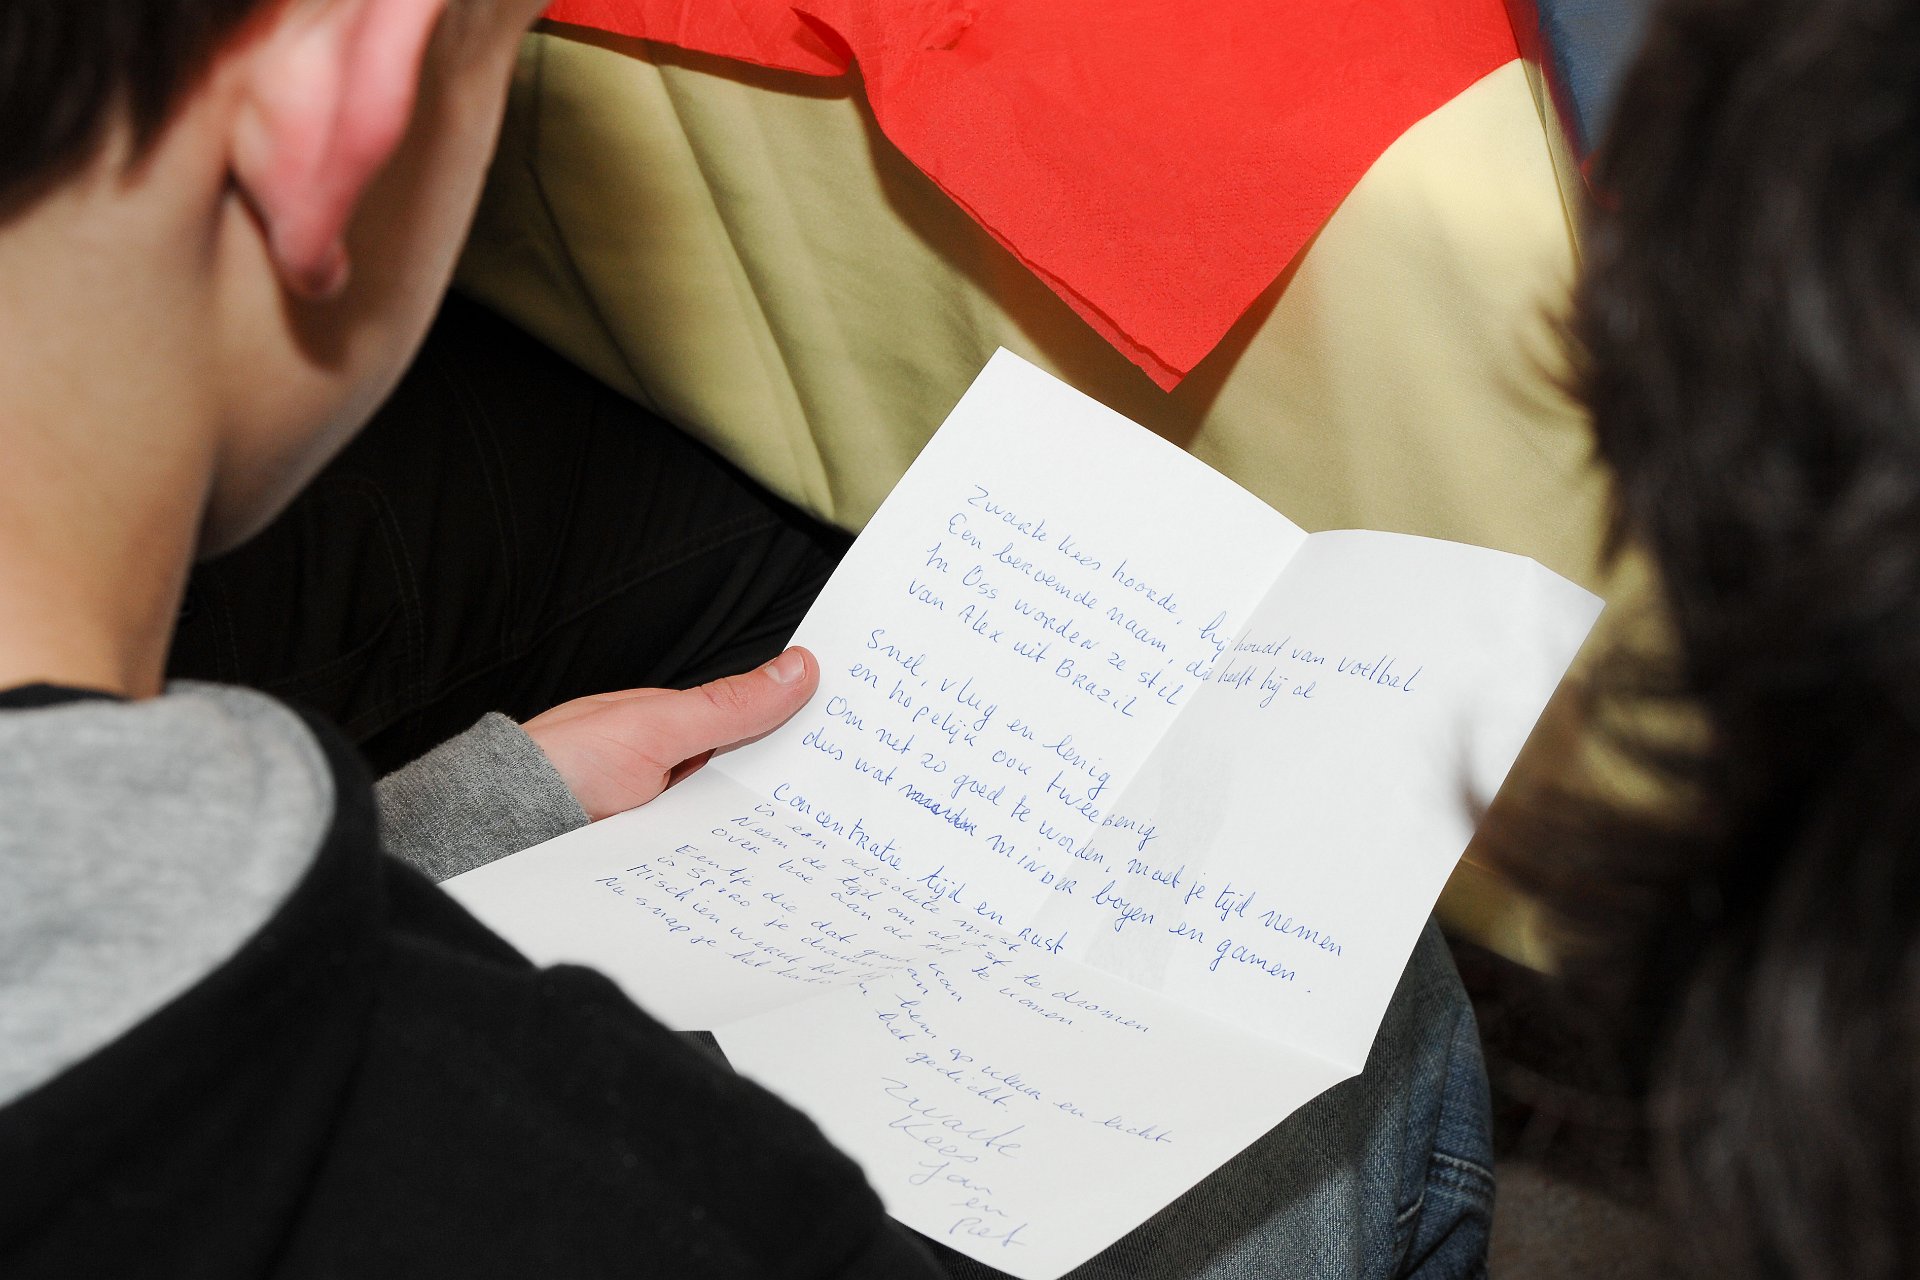 Zwarte Kees hoorde, hij houdt van voetbal
Een beroemde naam, die heeft hij al
In Oss worden ze stil
van Alex uit Brazil
Snel, vlug en lenig
en hopelijk ook tweebenig
Om net zo goed te worden, moet je tijd nemen
dus wat minder boyen en gamen.
Concentratie, tijd en rust
is een absolute must
Neem de tijd om al vast te dromen
over hoe aan de te komen.
Eentje die dat goed kan
is Spiro je
Misschien werkt het bij hem op kleur en licht
Nu snap je het gedicht.
Zwarte
Kees
Jan
en
Piet